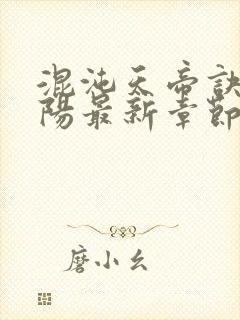 混沌天帝訣
陽最新章節
磨小幺